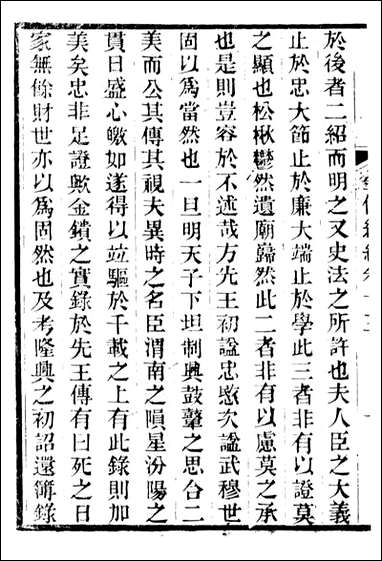 於後者二紹而明之又史法之所許也夫人臣之大義
止於忠大節止於廉大端止於學此三者非有以證莫
之顯也松楸鬱然遺廟巋然此二者非有以慮莫之承
也是則豈容於不述哉方先王初諡忠愍次諡武穆世
固以為當然也一旦明天子下坦制興鼓鼙之思合二
美而公其傳其視夫異時之名臣渭南之隕星汾陽之
貫日盛心皦如遂得以竝驅於千載之上有此錄則加
美矣忠非足證歟金鑕之實錄於先王傳有曰死之日
家無餘財世亦以為固然也及考隆興之初詔還簿錄